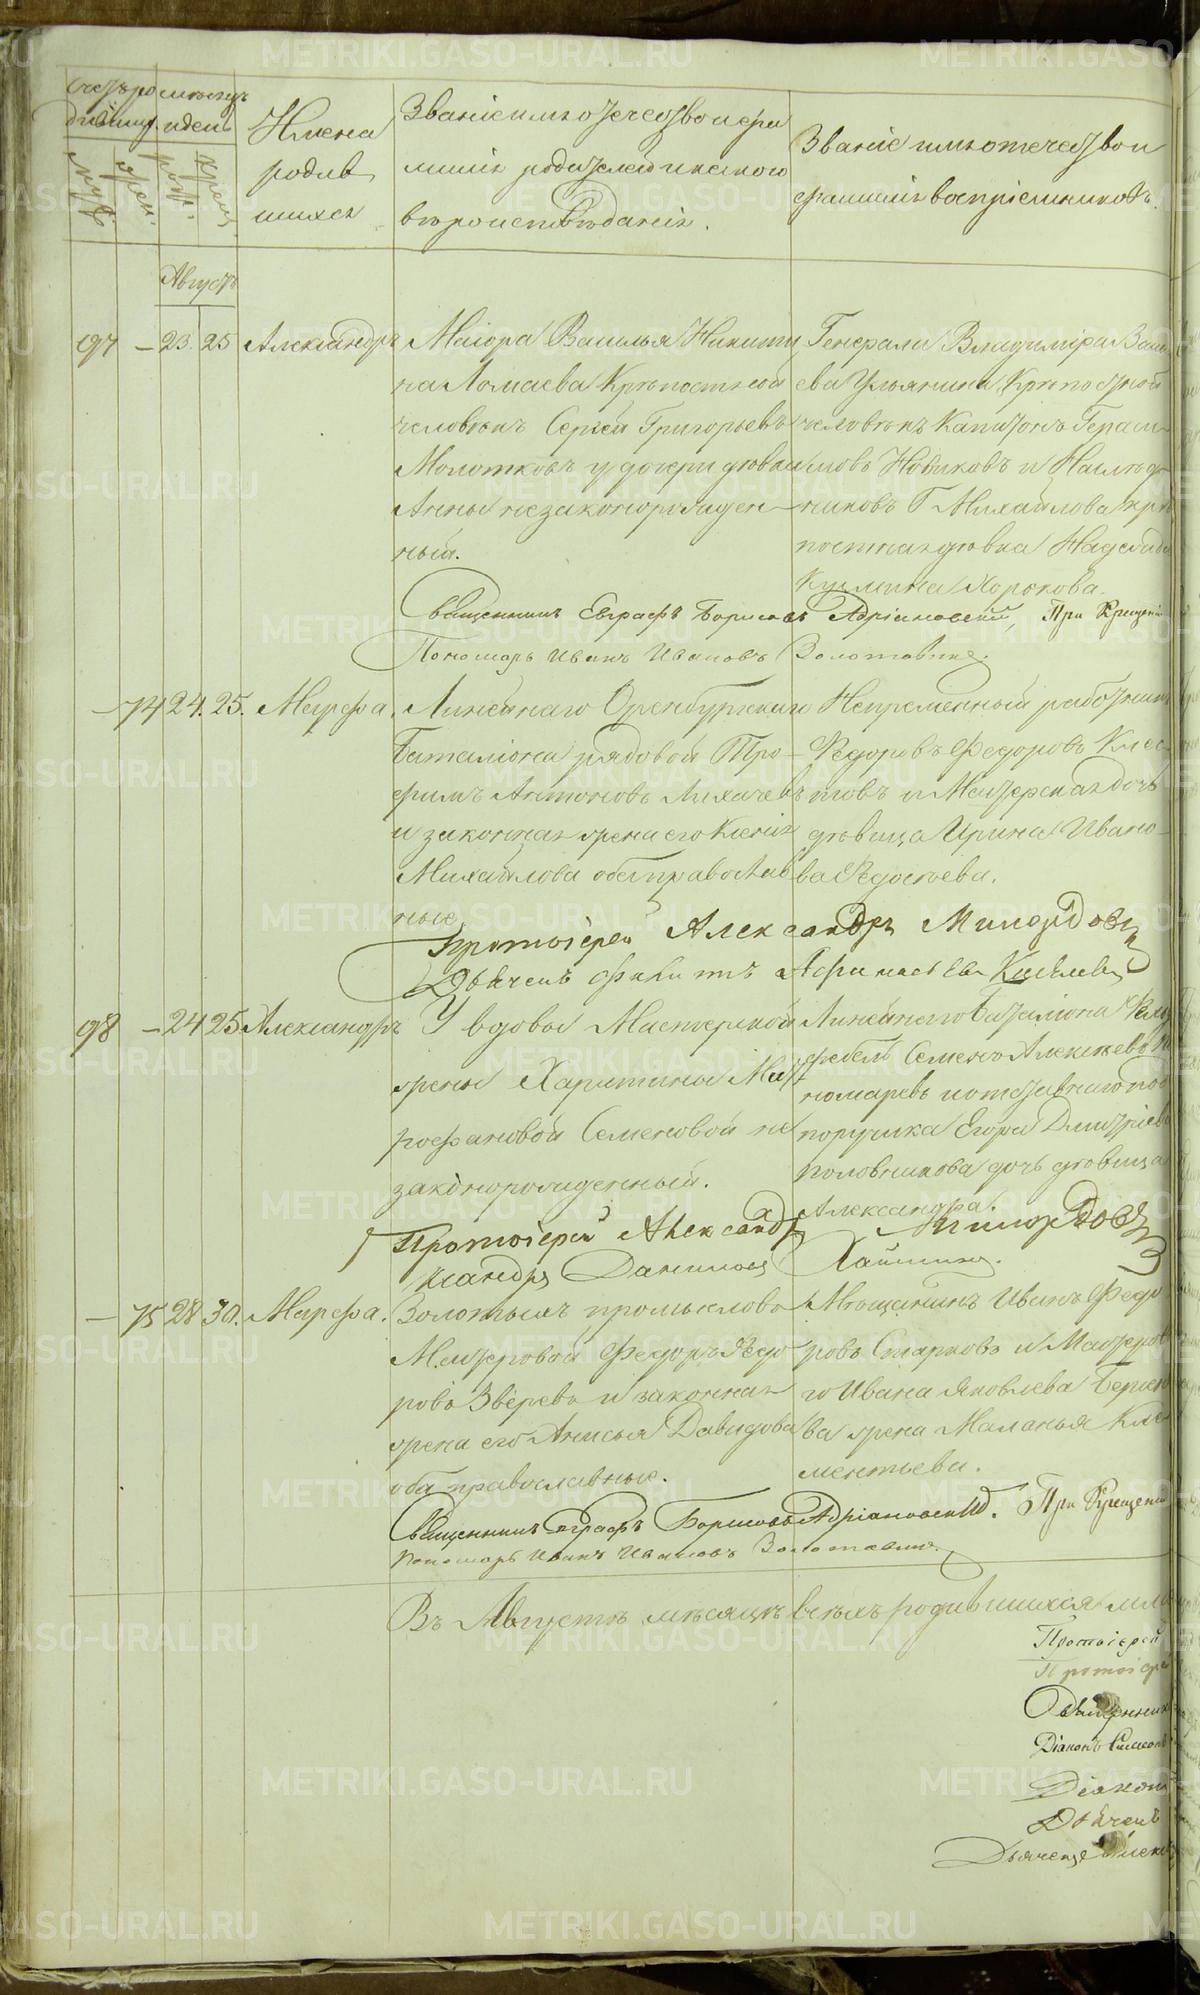 Счетъ ро
дивших.
месяцъ
и день
муж.
жен.
рож.
крещ
Имена
родив
шихся
Званіе имя отечество и фа
милія родителей и какого
вѣроисповѣданія.
Званіе имя отечество и
фамилія воспріемниковъ.
Августъ
97 — 23. 25 Александръ
Маіора Василья Никити
на Ломаева Крѣпостной
человѣкъ Сергей Григорьевъ
Молотковъ у дочери дѣвки
Анны незаконорожден
ный.
Генерала Владиміра Васи
ева Ульянина Крѣпостной
человѣкъ Капитонъ Гераси
мовъ Новиковъ и Наслѣд
никовъ Г. Михайлова крѣ
постная дѣвка Надежда
Кузмина Хорокова.
Священникъ Евграфъ Борисовъ Адріановскій, При Крещеніи
Пономарь Иванъ Ивановъ Золотавинъ.
— 74 24. 25. Марфа.
Линейнаго Оренбургскаго
Баталіона рядовой Тро
фимъ Антоновъ Лихачевъ
и законная жена его Ксенія
Михайлова оба православ
ные
Непременный работник
Федоровъ Федоровъ
товъ и Мастерская дочь
дѣвица Ирина Ивано
ва Федосѣева.
Протоіерей Александръ Милорідовъ
Дьячекъ Филиппъ Афанасьевъ Киселевъ
98 — 24 25 Александръ
У вдовы Мастерской
жены Харитины Мит
рофановой Семеновой не
законорожденный.
Линейнаго Баталіона Фельд
фебель Семенъ Алексѣевъ По
номаревъ и отставнаго под
поручика Егора Дмитріева
Половникова дочь дѣвица
Александра.
Протоіерей Александръ Милорідовъ
Даниловъ
— 75 28 30. Марфа.
Золотыхъ промысловъ
Мастеровой Федоръ Федо
ровъ Звѣревъ и законная
жена его Анисья Давидова
оба православные.
Мѣщанинъ Иванъ Федо
ровъ Старковъ и Мастеров
го Ивана Яковлева
ва жена Маланья Кле
ментьева.
Священникъ Евграфъ Борисовъ Адріановскій. При Крещеніи
Пономарь Иванъ Ивановъ Золотавинъ.
Въ Августѣ мѣсяцѣ всѣхъ родившихся мла
Протоіерей
Протоіере
Священник
Діаконъ Симеонъ
Діаконъ
Дьячекъ
Дьячекъ Алекс
METRIKI.GASO-URAL.RU